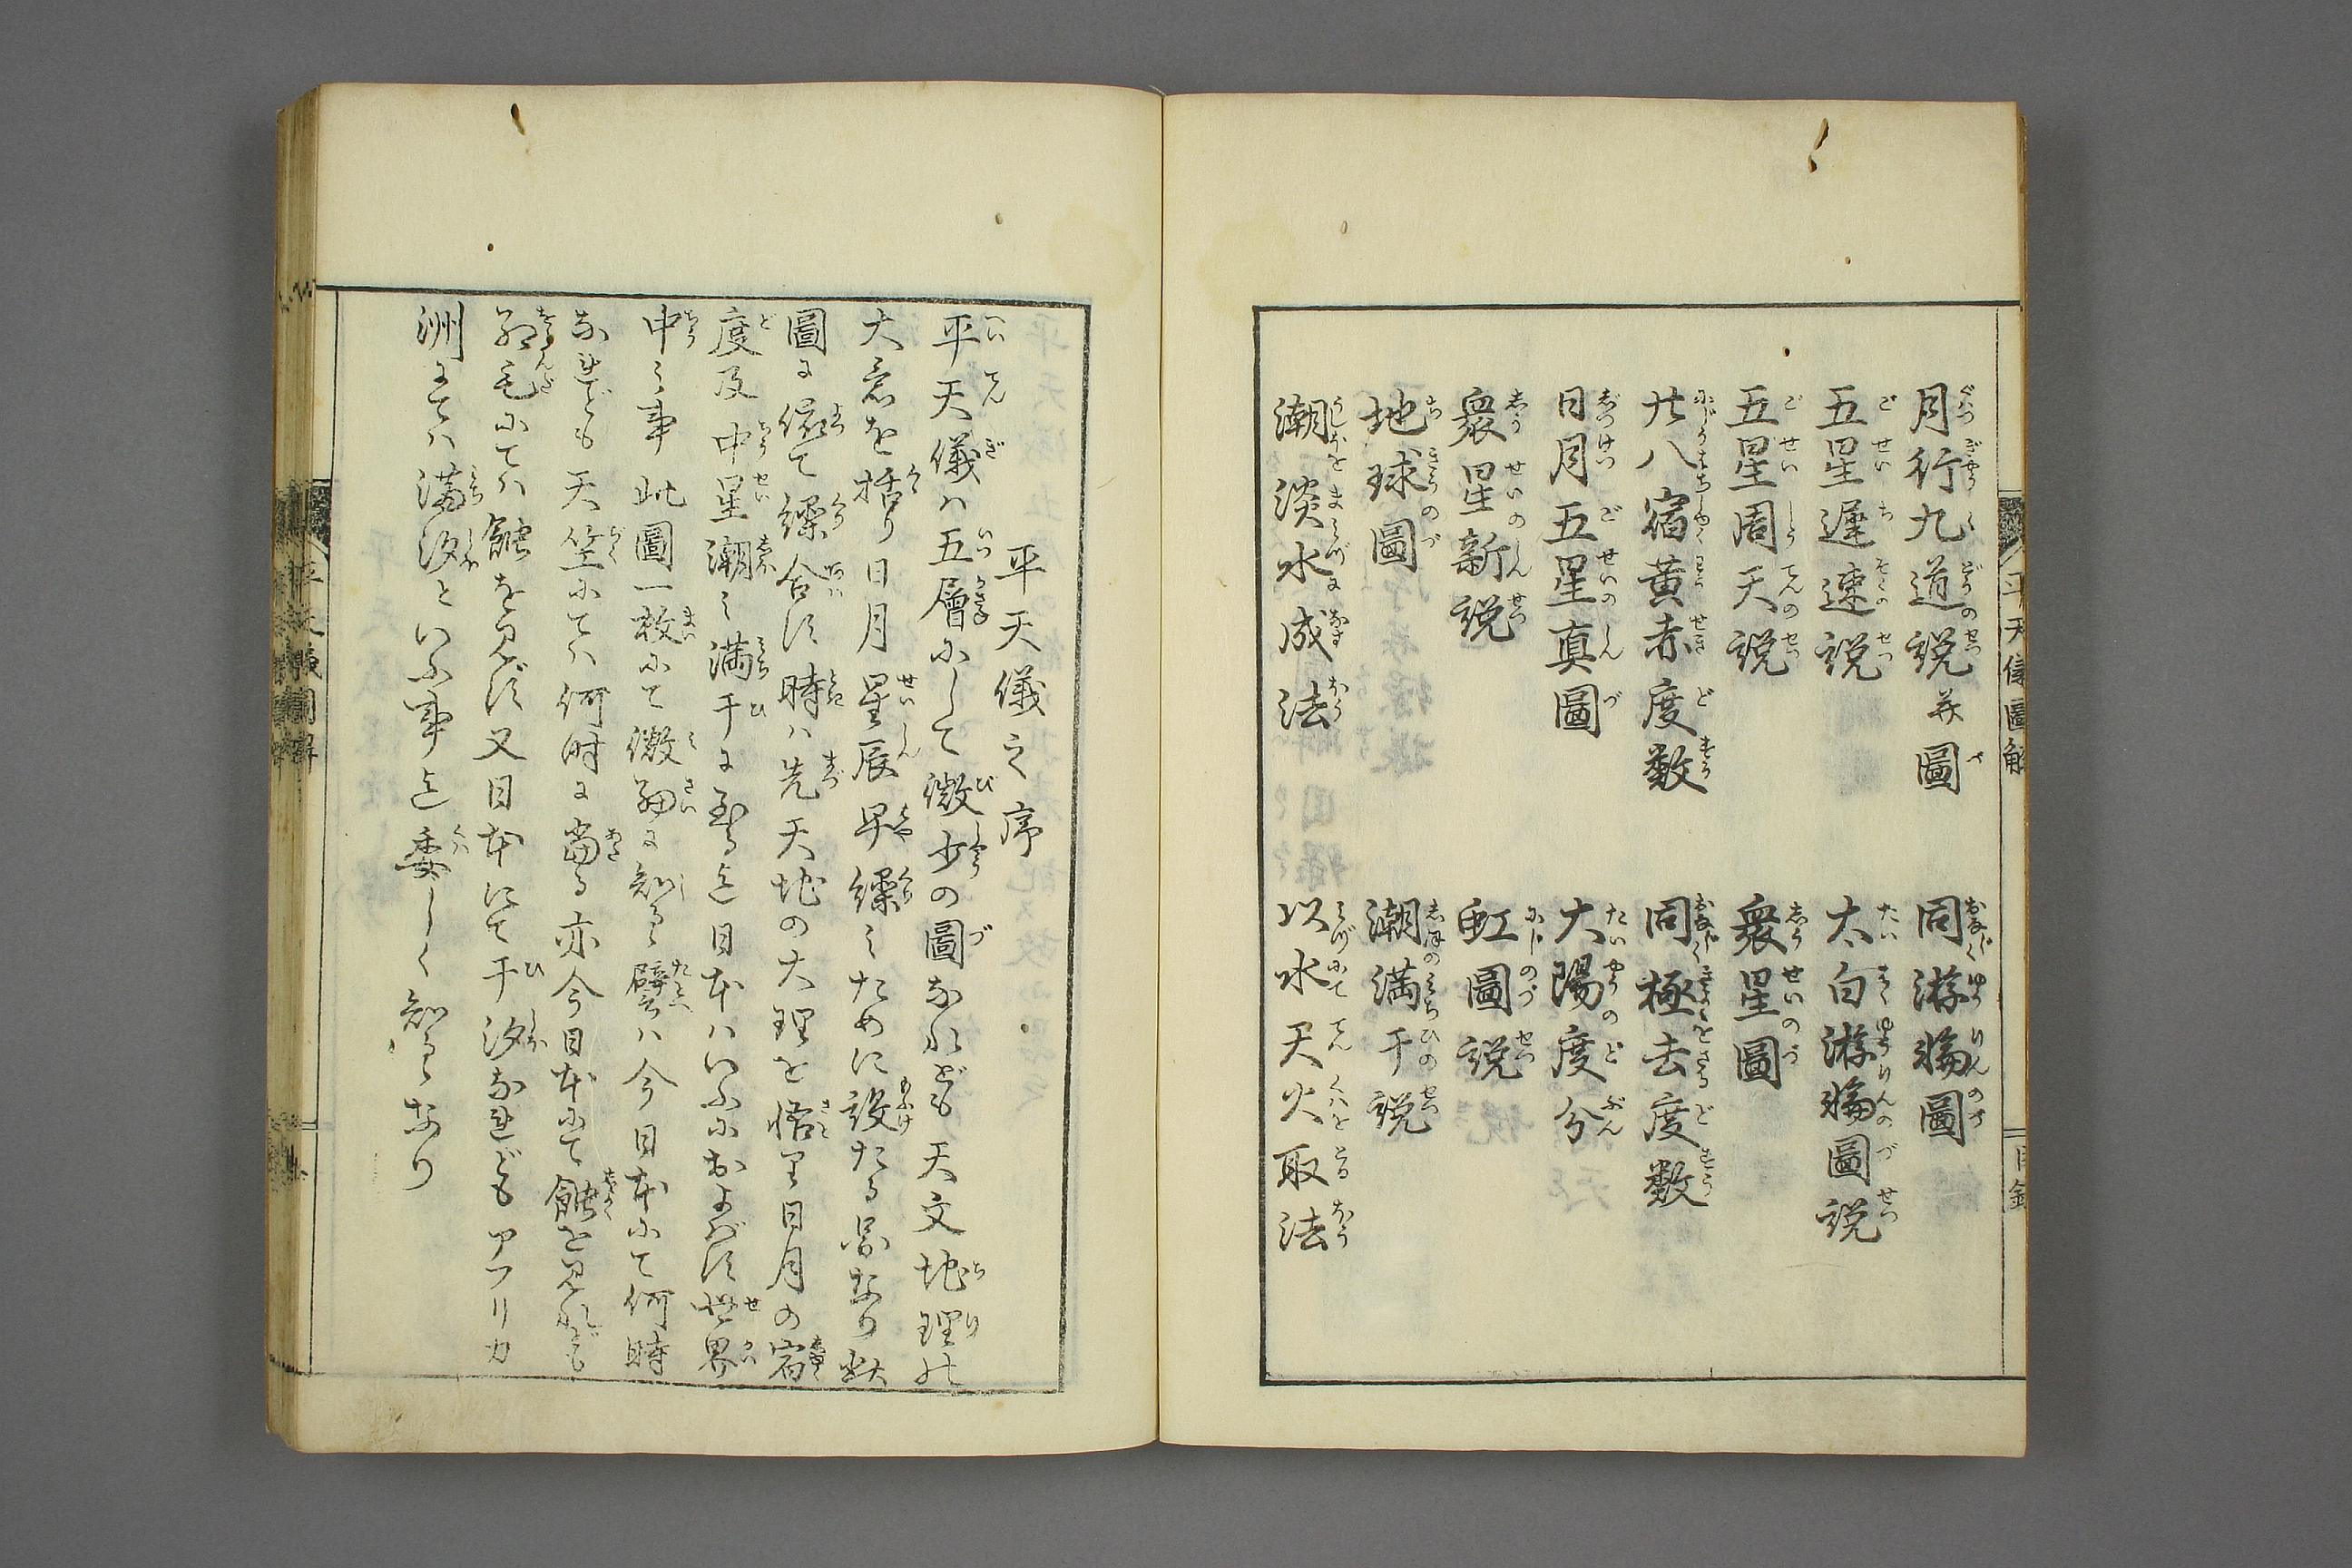 平天儀圖解
目録
月行九道説并圖
同游輪圖
五星遲速説
太白游輪圖説
五星周天説
衆星圖
廿八宿黄赤度数
同極去度数
日月五星真圖
大陽度分
衆星新説
虹圖説
地球圖
潮満干説
潮淡水成法
以水天火取法
平天儀之序
平天儀ハ五層にして微少の圖なれども天文地理の
大意を括り日月星辰早繰之ために設たる図なり此
圖に依て繰合す時ハ先天地の大理を悟り日月の宿
度及中星潮之満干に至る迄日本ハいふにおよばず世界
中之事此圖一枚にて微細に知る譬ハ今日本にて何時
なれども天竺にてハ何時に當る亦今日本にて蝕を見れども
紅毛にてハ蝕を見ず又日本にて干汐なれどもアフリカ
洲にてハ満汐といふ事迄委しく知るなり
平天儀圖解